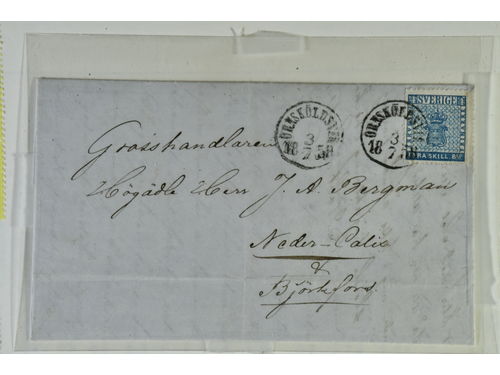 ÖRNSKÖLDSVIK
3
18 58
7
ÖRNSKÖLDSVIK
3
18
7
SVERIGE
FYRA SKILL. Bco
Grosshandlaren
Högädle Herr J. A. Bergman
Neder-Calix
&
Björkfors.